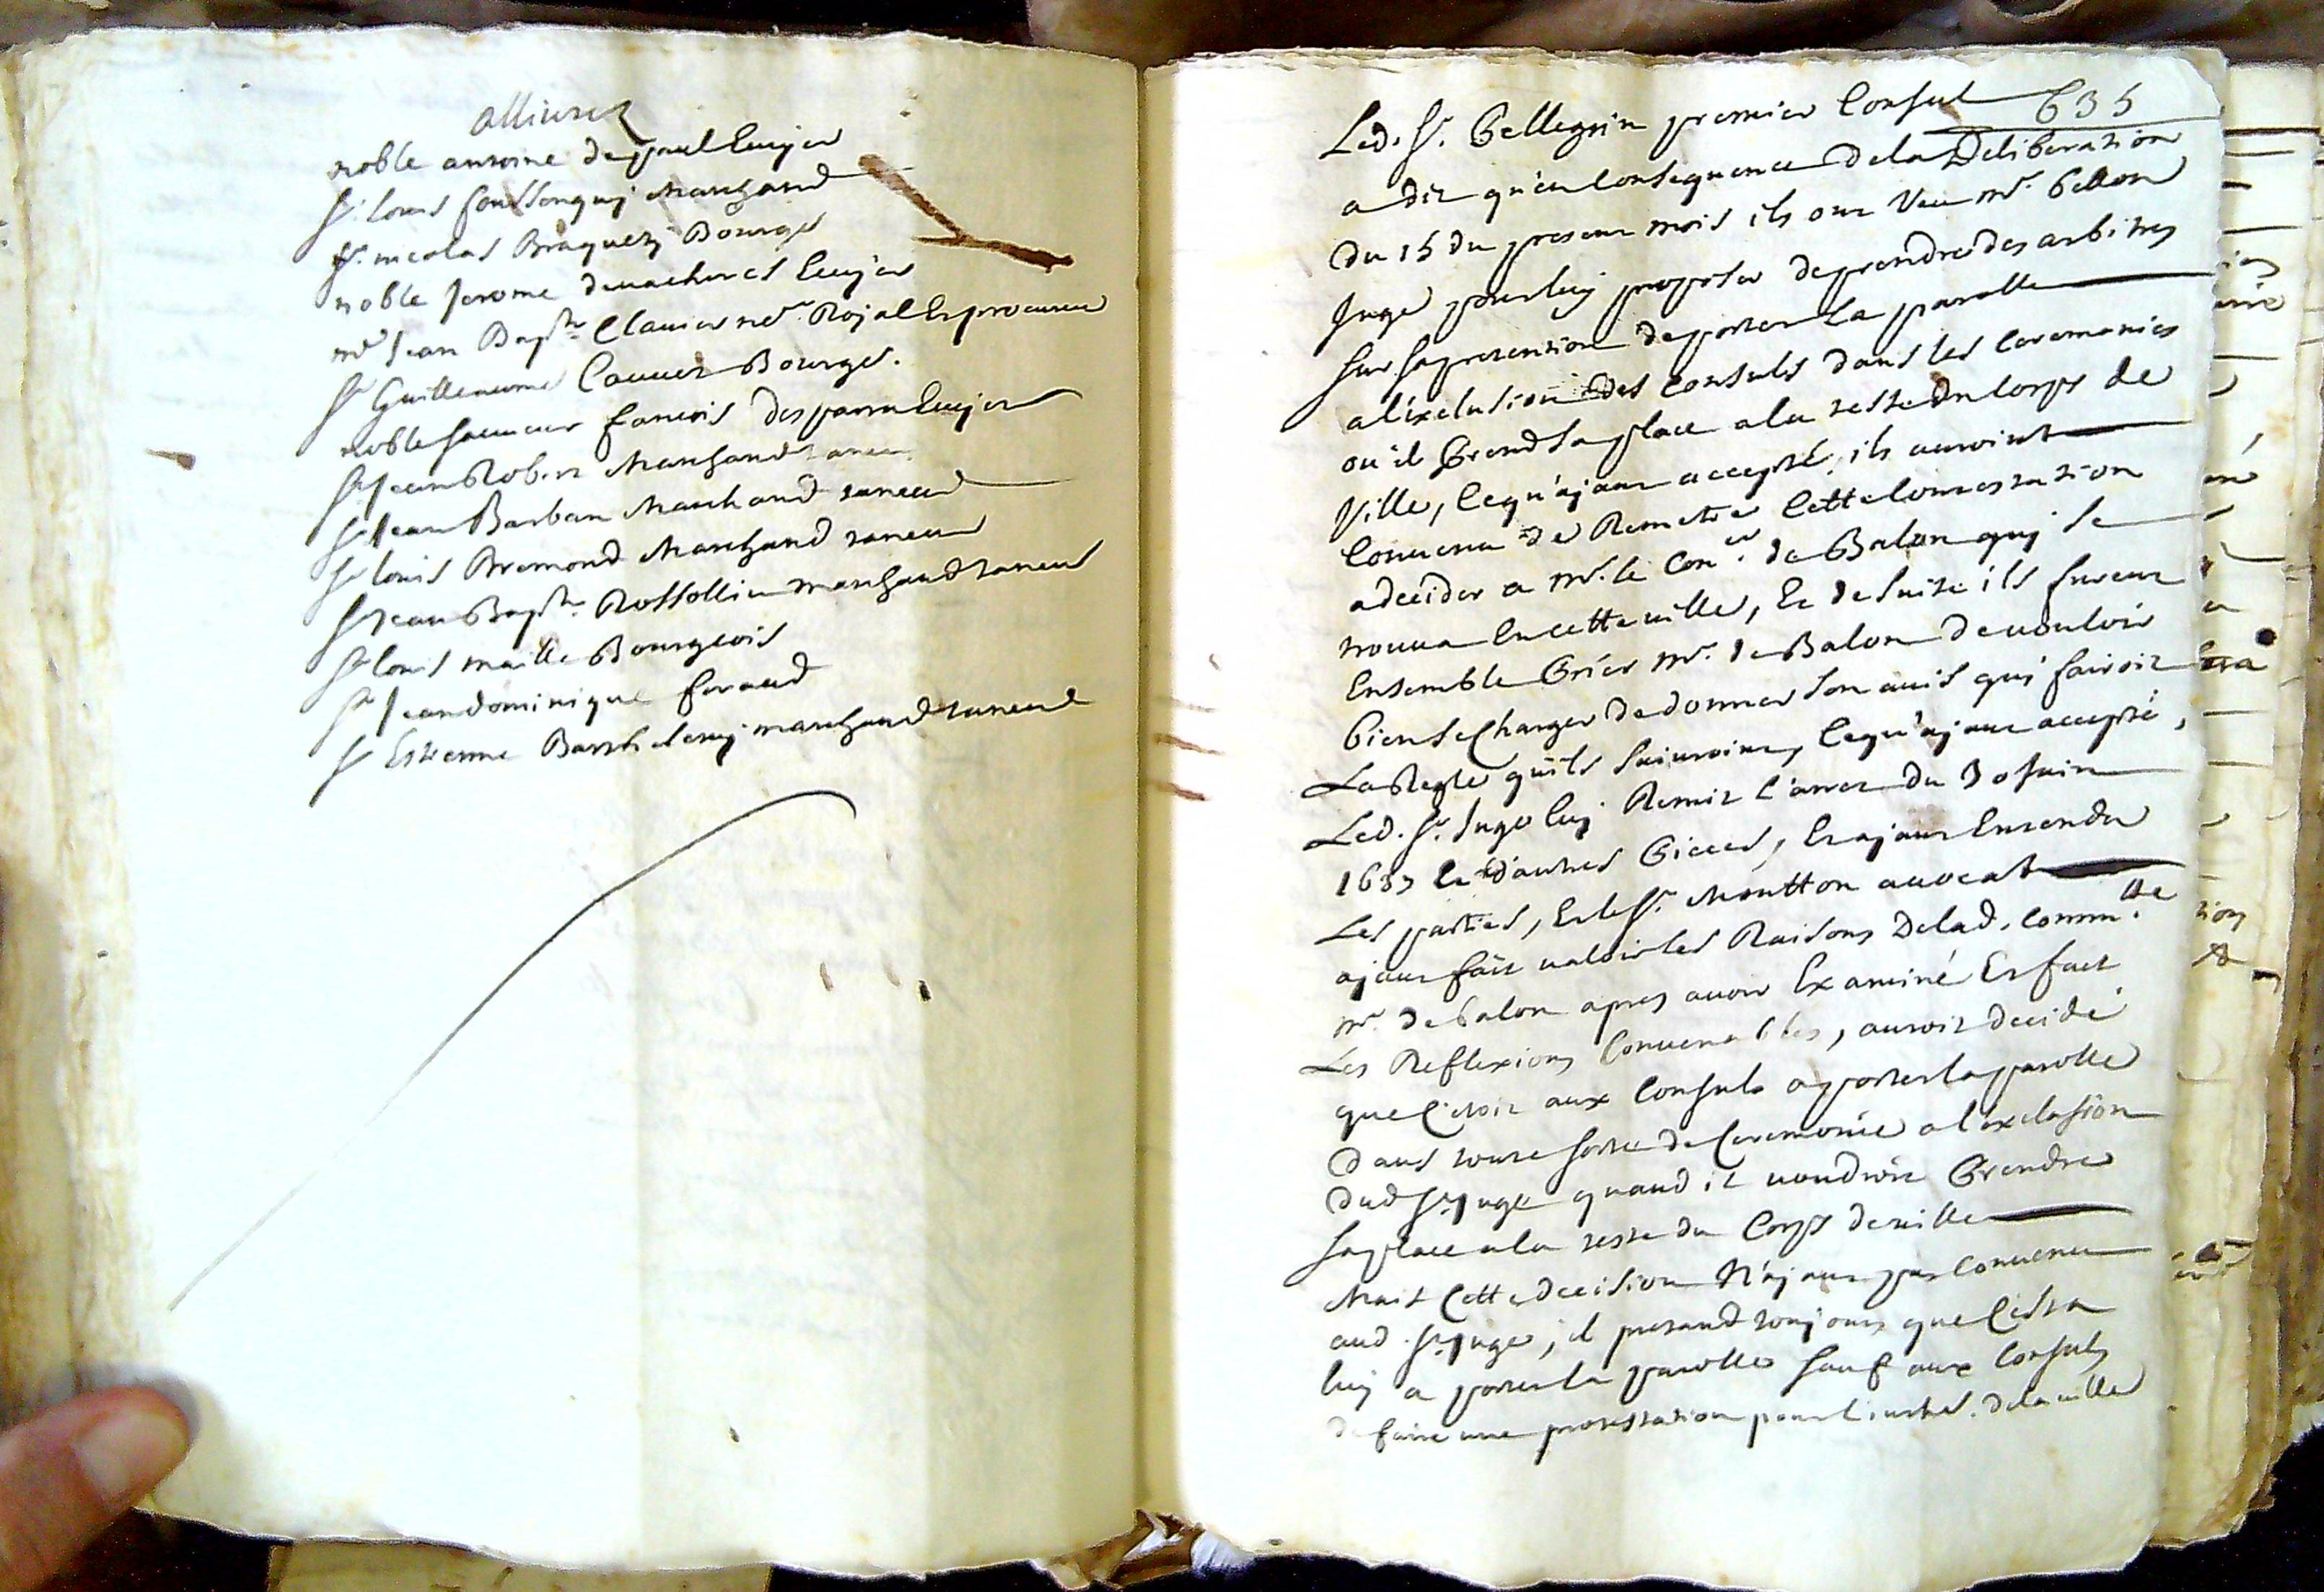 allivrez
noble antoine de paul Ecuyer
Sr. louis foussenquy Marchand
Sr. nicolas Braquety Bourgs
noble Jerome devacheres Ecuyer
me Jean Bapte Clavier nre. Royal Et procureur
Sr Guilleaume Cauvet Bourgs.
noble sauveur francois desparra Ecuyer
Sr Jean Robert Marchand taneur
Sr Jean Barban Marchand taneur
Sr louis Bremond Marchand taneur
Sr Jean Bapte Rossollin marchand taneur
Sr louis maille Bourgeois
Sr Jean dominique feraud
Sr Estienne Barthelemy marchand taneur
635
Led. Sr. Pellegrin premier Consul
a dit qu'en Consequence de la Deliberation
du 15 du present mois ils ont Veu mr. Pellon
Juge pour luy proposer de prendre des arbitres
sur sa pretention de porter La parolle
a l'exclusion des Consuls dans les Ceremonies
ou il Prend sa place a la teste du Corps de
Ville, Ce qu'ayant accepté, ils auroint
Convenu de Remettre Cette Contestation
a decider a mr. le Coner. de Balon quy se
trouva En cette ville, Et de suite ils furent
Ensemble Prier mr. de Balon de vouloir
bien se Charger de donner son avis qui fairoit
La Regle qu'ils suivroint, Ce qu'ayant accepté,
Led. Sr. Juge luy Remit l'arret du 30 juin
1683 Et d'autres Pieces, Et ayant Entendu
Les parties, Et le Sr. Moutton avocat
ayant fait valoir les Raisons de lad. Commté.
mr. de balon apres avoir Examiné Et fait
Les Reflexions Convenables, auroit decidé
que C'etoit aux Consuls a porter la parolle
dans toute sorte de Ceremonie a l'exclusion
dud Sr. Juge quand il voudroit Prendre
sa place a la teste du Corps de ville
Mais Cette decision N'ayant pas Convenu
aud. Sr. Juge, il pretend toujours que C'est a
luy a porter la parolle sauf aux Consuls
de faire une protestation pour l'interest de la ville